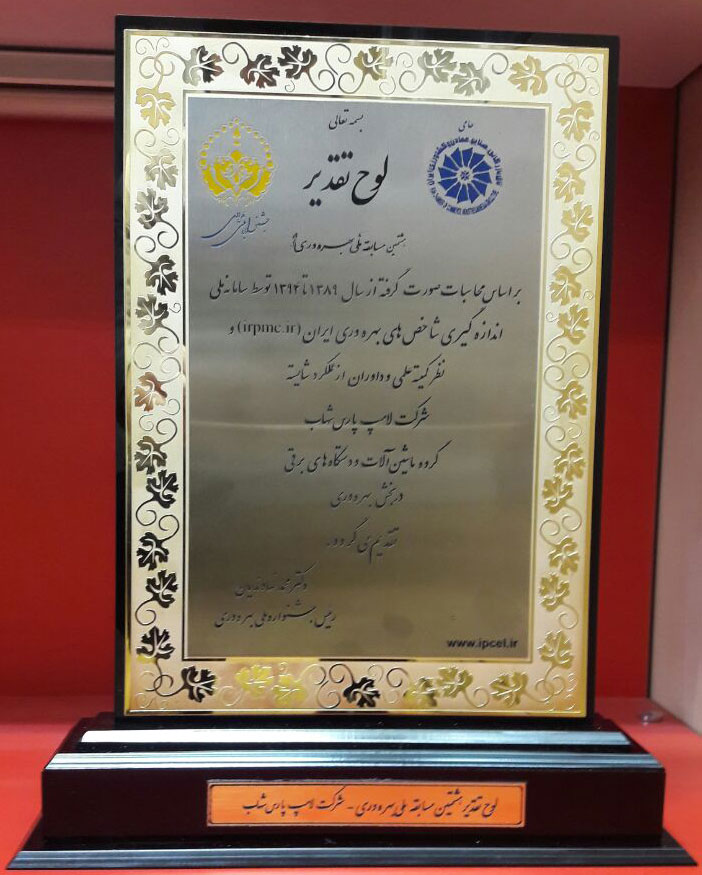 بسمه تعالی
حامی
لوح تقدیر
هشتمین مسابقه ملی بهره وری
بر اساس محاسبات صورت گرفته از سال ۱۳۸۹ تا ۱۳۹۲ توسط سامانه ملی
اندازه گیری شاخص های بهره وری ایران (irpmc.ir) و
نظر کمیته علمی و داوران از عملکرد شایسته
شرکت لامپ پارس شهاب
گروه ماشین آلات و دستگاه های برقی
در بخش بهره وری
تقدیر می گردد.
دکتر محمد نهاوندیان
رئیس جشنواره ملی بهره وری
www.ipcel.ir
لوح تقدیر هشتمین مسابقه ملی بهره وری - شرکت لامپ پارس شهاب